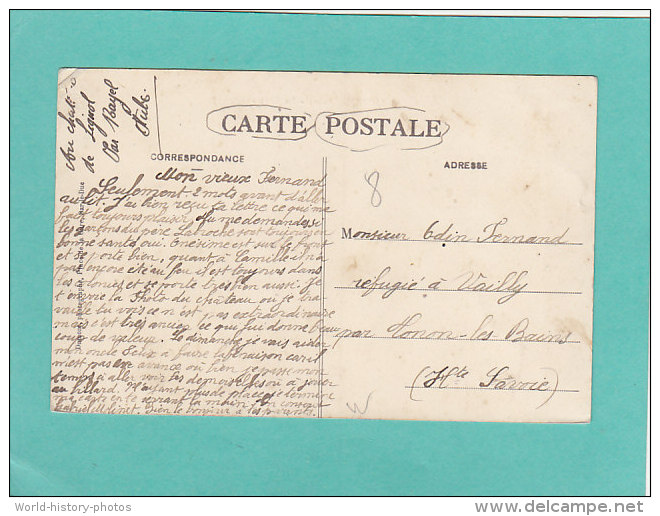 Au chateau
de Lignol
Par Bayel
Aube
CARTE POSTALE
CORRESPONDANCE
ADRESSE
8
Mon vieux Fernand
Seulement 2 mots avant d'aller
au lit. J'ai bien reçu ta lettre ce qui me
fait toujours plaisir. Tu me demandes si
les garçons du père Laroche sont toujours en
bonne santé oui. Onésime est sur le front
et se porte bien, quant à Camille il n'a
pas encore été au feu il est toujours dans
les et se porte très bien aussi. Je
t'envoie la Photo du château où je tra
vaille tu vois ce n'est pas extraordinaire
mais c'est très ancien ce qui lui donne beau
coup de valeur. Le dimanche je vais aider
mon oncle Félix à faire la car il
n'est pas en avance ou bien je passe mon
temps à aller voir les demoiselles ou à jouer
au billard. N'ayant plus de place je termine
ma carte en te serrant la main. Ton copain
Bien le bonjour à tes parents.
Monsieur Odin Fernand
refugié à Vailly
par Thonon-les Bains
(Hte Savoie)
W
World-history-photos
delcampe.net